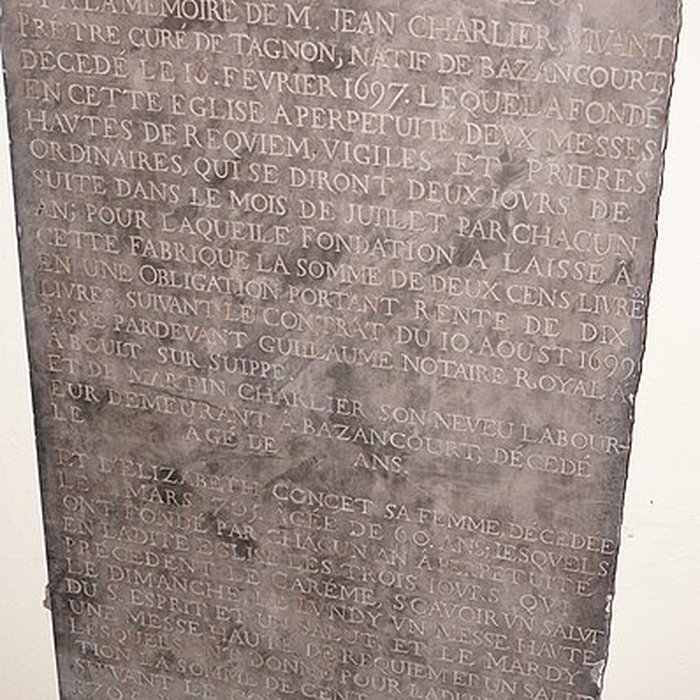 ET A LA MEMOIRE DE M. JEAN CHARLIER, VIVANT
PRÊTRE CURÉ DE TAGNON, NATIF DE BAZANCOURT
DÉCEDÉ LE 16. FÉVRIER 1697. LEQUEL A FONDÉ
EN CETTE EGLISE A PERPETUITÉ DEVX MESSES
HAVTES DE REQVIEM, VIGILES ET PRIERES
ORDINAIRES, QUI SE DIRONT DEUX IOVRS DE
SUITE DANS LE MOIS DE JUILLET PAR CHACUN
AN; POUR LAQUELLE FONDATION A LAISSÉ À
CETTE FABRIQUE LA SOMME DE DEUX CENS LIVRES
EN UNE OBLIGATION PORTANT RENTE DE DIX
LIVRES, SUIVANT LE CONTRAT DU 10. AOUST 1699
PASSÉ PARDEVANT GUILLAUME NOTAIRE ROYAL À
À BOULT SUR SUIPPE
ET DE MARTIN CHARLIER SON NEVEU LABOUR-
EUR DEMEURANT À BAZANCOURT, DÉCEDÉ
LE AGÉ DE ANS.
ET D'ELIZABETH CONCET SA FEMME, DÉCEDÉE
LE MARS AGÉE DE 60. ANS; LESQUELS
ONT FONDÉ PAR CHACUN AN A PERPETUITÉ
EN LADITE EGLISE LES TROIS IOURS QVI
PRÉCEDENT LE CARÊME, SÇAVOIR VN SALVT
LE DIMANCHE, LE LUNDY VN MESSE HAVTE
DU S. ESPRIT ET UN SALUT, ET LE MARDY
UNE MESSE HAUTE DE REQUIEM ET UN SALUT
LESQUELS ONT DONNÉ POUR LADITE
TION LA SOMME DE CENT
SUIVANT LE